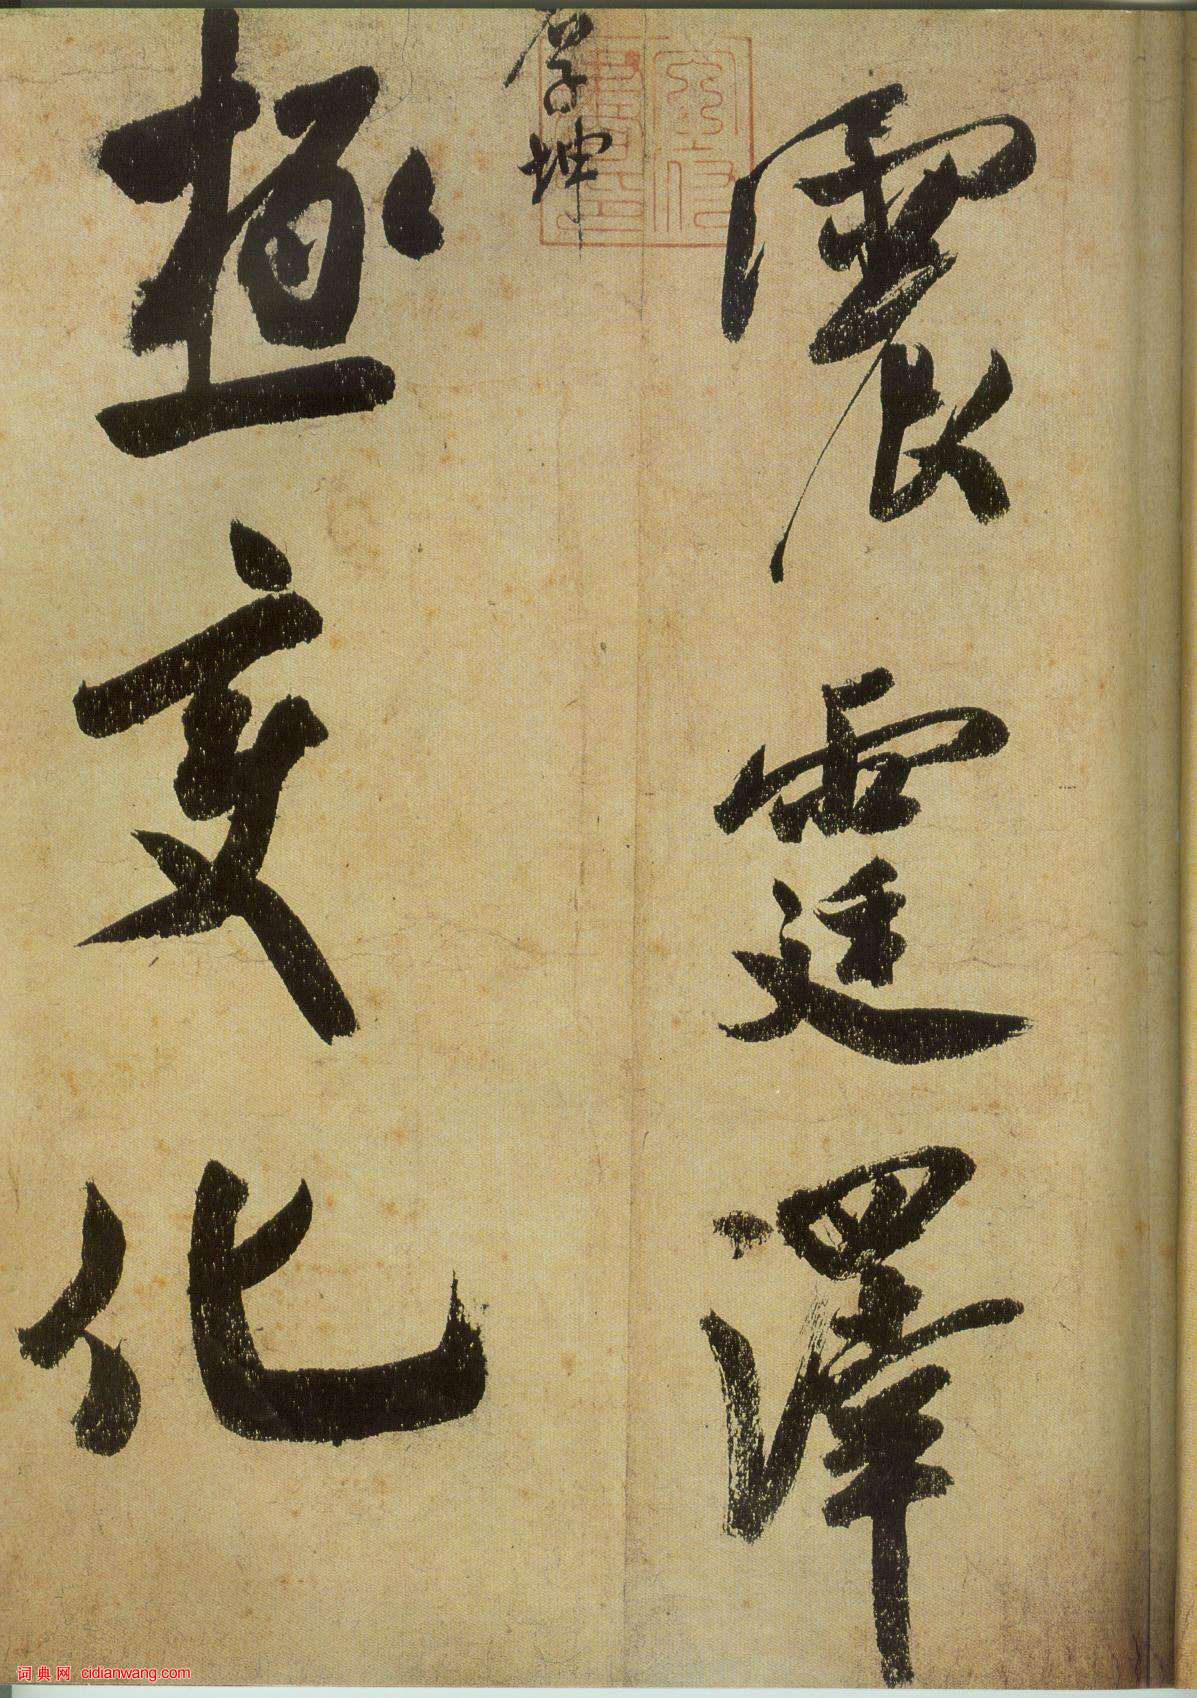 震霆澤
坤
極变化
词典网 cidianwang.com